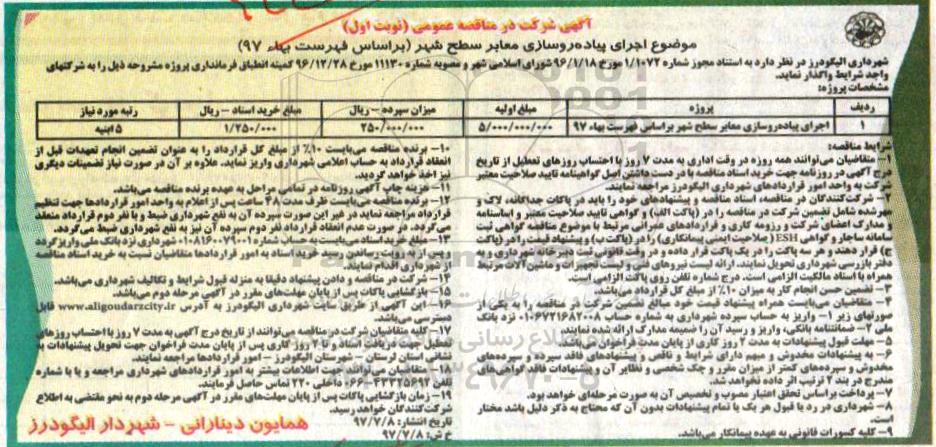 آگهی شرکت در مناقصه عمومی (نوبت اول)
موضوع اجرای پیاده‌روسازی معابر سطح شهر (براساس فهرست بهاء ۹۷)
شهرداری الیگودرز در نظر دارد به استناد مجوز شماره ۱/۱۰۷۲ مورخ ۹۶/۱/۱۸ شورای اسلامی شهر و مصوبه شماره ۱۱۱۳۰ مورخ ۹۶/۱۲/۲۸ کمیته انطباق فرمانداری پروژه مشروحه ذیل را به شرکتهای
واجد شرایط واگذار نماید.
مشخصات پروژه:
ردیف پروژه مبلغ اولیه میزان سپرده – ریال مبلغ خرید اسناد – ریال رتبه مورد نیاز
۱ اجرای پیاده‌روسازی معابر سطح شهر براساس فهرست بهاء ۹۷ ۵/۰۰۰/۰۰۰/۰۰۰ ۲۵۰/۰۰۰/۰۰۰ ۱/۲۵۰/۰۰۰ ۵ ابنیه
شرایط مناقصه:
۱– متقاضیان می‌توانند همه روزه در وقت اداری به مدت ۷ روز با احتساب روزهای تعطیل از تاریخ
درج آگهی در روزنامه جهت خرید اسناد مناقصه با در دست داشتن اصل گواهینامه تایید صلاحیت معتبر
شرکت به واحد امور قراردادهای شهرداری الیگودرز مراجعه نمایند.
۲– شرکت‌کنندگان در مناقصه، اسناد مناقصه و پیشنهادهای خود را باید در پاکات جداگانه، لاک و
مهر شده شامل تضمین شرکت در مناقصه را در (پاکت الف) و گواهی تایید صلاحیت معتبر و اساسنامه
و مدارک اعضای شرکت و رزومه کاری و قراردادهای عمرانی مرتبط با موضوع مناقصه گواهی ثبت
سامانه ساجار و گواهی ESH (صلاحیت ایمنی پیمانکاری) را در (پاکت ب) و پیشنهاد قیمت را در (پاکت
ج) قرار دهند و هر سه پاکت را در یک پاکت قرار داده و در وقت قانونی به دبیرخانه شهرداری و به
دفتر بازرسی شهرداری تحویل نمایند. ارائه لیست نیروهای فنی و لیست تجهیزات و ماشین آلات مرتبط
همراه با اسناد مالکیت الزامی است. درج شماره تلفن روی پاکت الزامی است.
۳– تضمین حسن انجام کار به میزان ۱۰٪ از مبلغ کل قرارداد می‌باشد.
۴– متقاضیان می‌بایست همراه پیشنهاد قیمت خود مبالغ تضمین شرکت در مناقصه را به یکی از
صورتهای زیر ۱– واریز به حساب سپرده شهرداری به شماره حساب ۰۱۰۶۷۲۱۶۸۲۰۰۸ نزد بانک
ملی ۲– ضمانتنامه بانکی، واریز و رسید آن را ضمیمه مدارک ارائه شده نمایند.
۵– مهلت قبول پیشنهادات به مدت ۷ روز کاری از پایان مدت فراخوان می‌باشد.
۶– به پیشنهادات مخدوش و مبهم دارای شرایط و ناقص و پیشنهادهای فاقد سپرده و سپرده‌های
مخدوش و سپرده‌های کمتر از میزان مقرر و چک شخصی و نظایر آن و پیشنهادات فاقد گواهی‌های
مندرج در بند ۲ ترتیب اثر داده نخواهد شد.
۷– پرداخت براساس تحقق اعتبار مصوب و تخصیص آن به صورت مرحله‌ای خواهد بود.
۸– شهرداری در رد یا قبول هر یک یا تمام پیشنهادات بدون آن که محتاج به ذکر دلیل باشد مختار
است.
۹– کلیه کسورات قانونی به عهده پیمانکار می‌باشد.
۱۰– برنده مناقصه می‌بایست ۱۰٪ از مبلغ کل قرارداد را به عنوان تضمین انجام تعهدات قبل از
انعقاد قرارداد به حساب اعلامی شهرداری واریز نماید. علاوه بر آن در صورت نیاز تضمینات دیگری
نیز اخذ خواهد گردید.
۱۱– هزینه چاپ آگهی روزنامه در تمامی مراحل به عهده برنده مناقصه می‌باشد.
۱۲– برنده مناقصه می‌بایست ظرف مدت ۴۸ ساعت پس از اعلام به واحد امور قراردادها جهت تنظیم
قرارداد مراجعه نماید در غیر این صورت سپرده آن به نفع شهرداری ضبط و با نفر دوم قرارداد منعقد
می‌گردد. در صورت عدم انعقاد قرارداد نفر دوم سپرده آن نیز به نفع شهرداری ضبط می‌گردد.
۱۳– مبلغ خرید اسناد می‌بایست به حساب شماره ۰۱۰۸۱۶۰۰۷۹۰۰۱ شهرداری نزد بانک ملی واریز گردد
پس از به رویت رساندن رسید خرید اسناد به امور قراردادها متقاضیان نسبت به خرید اسناد مناقصه
از شهرداری اقدام نمایند.
۱۴– شرکت در مناقصه و دادن پیشنهاد دقیقا به منزله قبول شرایط و تکالیف شهرداری می‌باشد.
۱۵– بازگشایی پاکات پس از پایان مهلت‌های مقرر در آگهی مرحله دوم می‌باشد.
۱۶– این آگهی از طریق سایت شهرداری الیگودرز به آدرس www.aligoudarzcity.ir قابل
دسترسی می‌باشد.
۱۷– کلیه متقاضیان شرکت در مناقصه می‌توانند از تاریخ درج آگهی به مدت ۷ روز با احتساب روزهای
تعطیل جهت دریافت اسناد و تا ۷ روز کاری پس از پایان مدت فراخوان جهت تحویل پیشنهادات به
نشانی استان لرستان – شهرستان الیگودرز – امور قراردادها مراجعه نمایند.
۱۸– متقاضیان می‌توانند جهت اطلاعات بیشتر به امور قراردادهای شهرداری مراجعه و یا با شماره
تلفن ۰۶۶۴۳۳۲۵۶۹۲ داخلی ۲۲۰ تماس حاصل فرمایند.
۱۹– زمان بازگشایی پاکات پس از پایان مهلت‌های مقرر در آگهی مرحله دوم به نحو مقتضی به اطلاع
شرکت‌کنندگان خواهد رسید.
تاریخ انتشار: ۹۷/۷/۸
خ ش: ۹۷/۷/۸
همایون دینارانی – شهردار الیگودرز